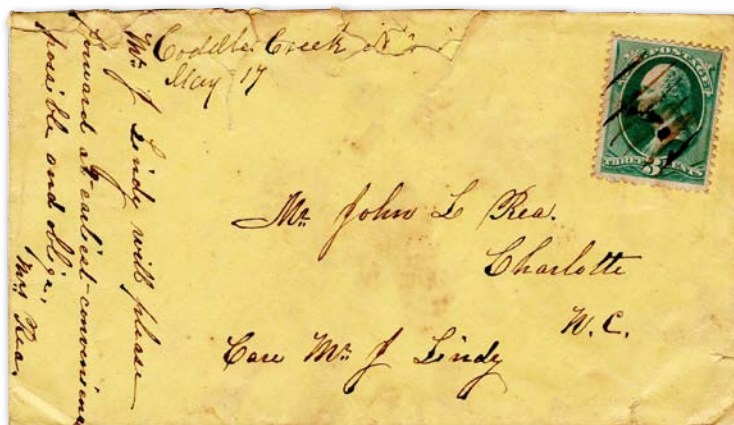 Coddle Creek N C
May 17
POSTAGE
THREE CENTS
3
Mr. John L Rea.
Charlotte
N. C.
Care Mr. J Lindy
Mr. J Lindy will please
forward at earliest convenience
possible and oblige,
Mrs Rea.